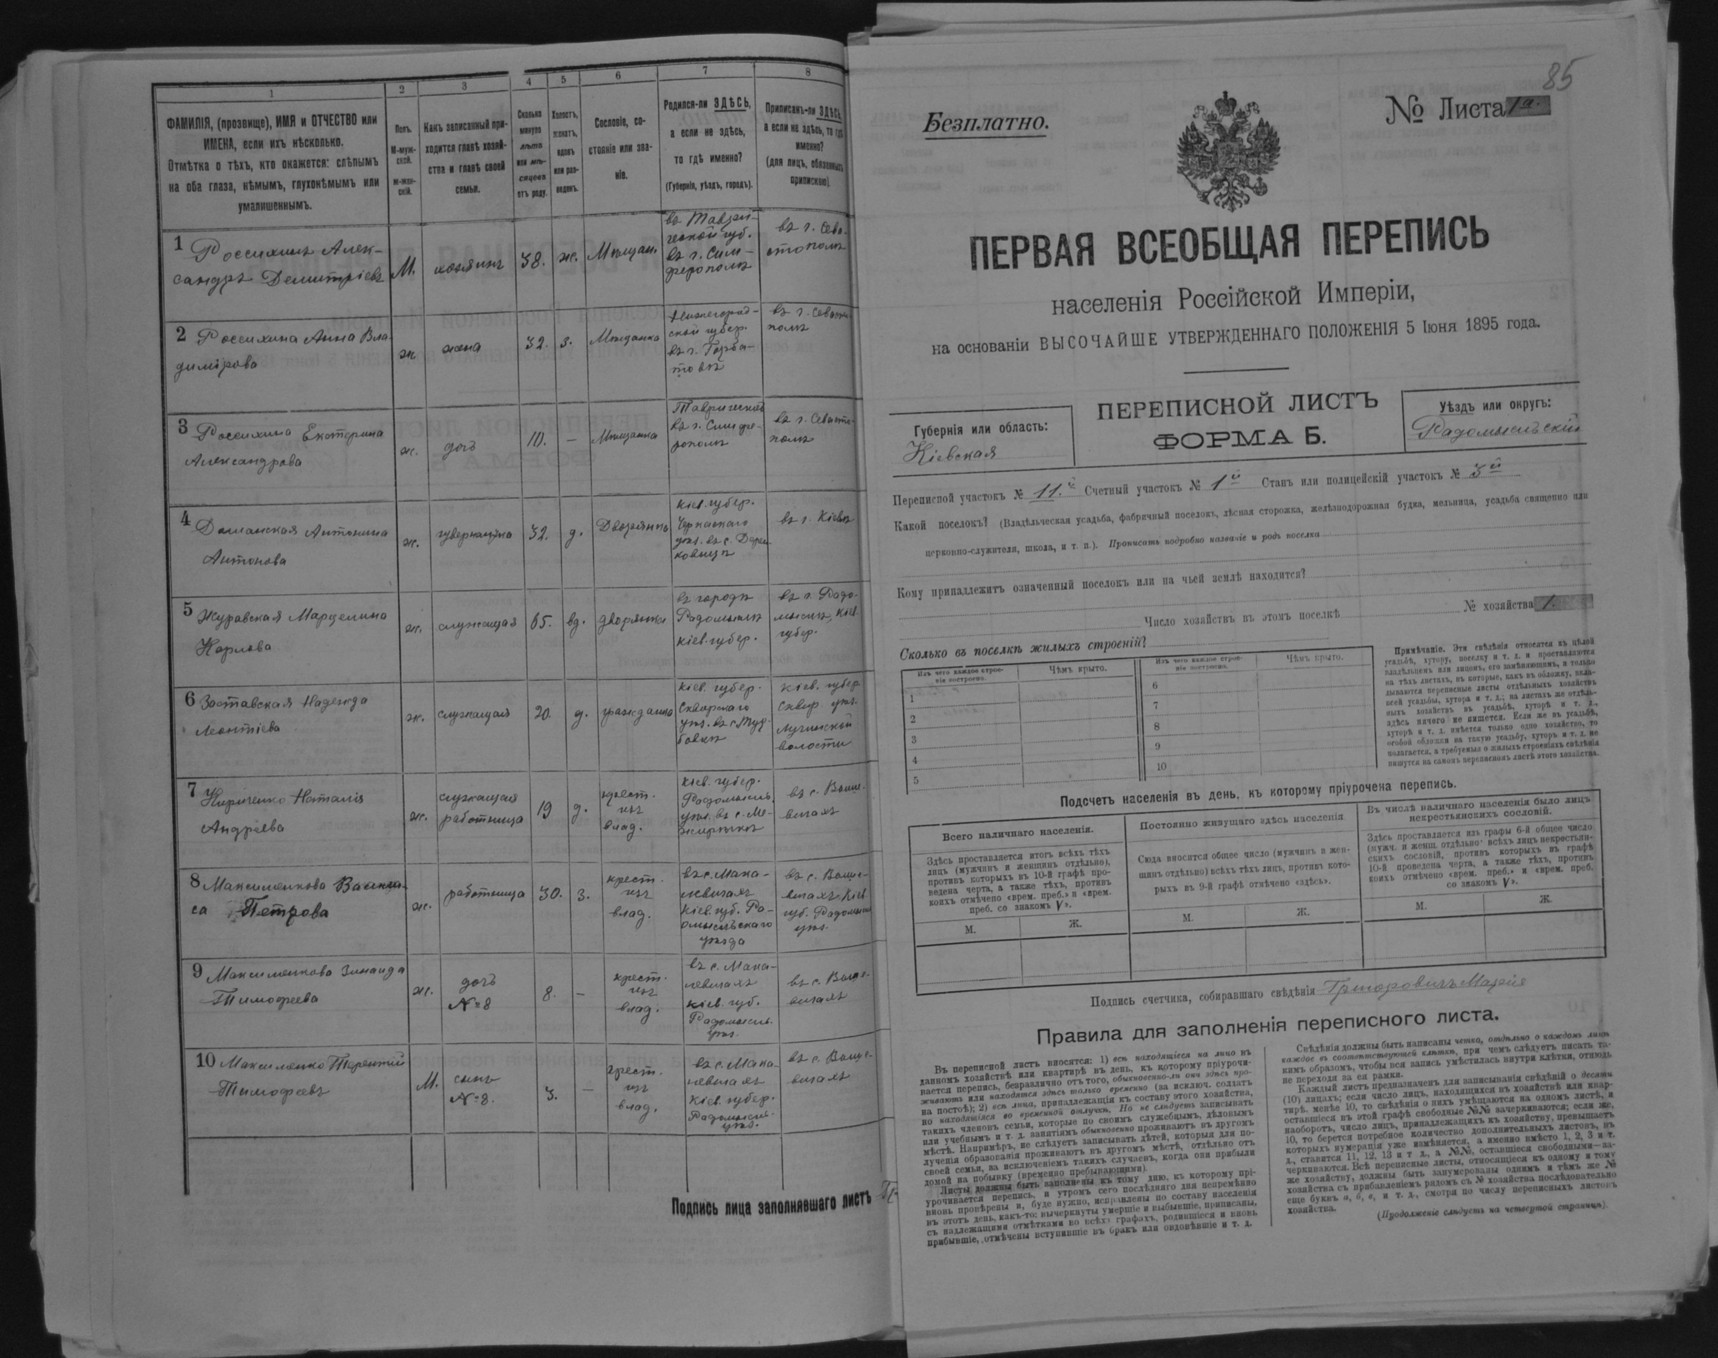 1
2
3
4
5
6
7
8
ФАМИЛІЯ, (прозвище), ИМЯ и ОТЧЕСТВО или
ИМЕНА, если ихъ нѣсколько.
Отмѣтка о тѣхъ, кто окажется: слѣпымъ
на оба глаза, нѣмымъ, глухонѣмымъ или
умалишеннымъ.
Полъ.
М-муж-
ской.
Ж-жен-
скій.
Какъ записанный при-
ходится главѣ хозяй-
ства и главѣ своей
семьи.
Сколько
минуло
лѣтъ
или мѣ-
сяцевъ
отъ роду.
Холостъ,
женатъ,
вдовъ
или раз-
веденъ.
Сословіе, со-
стояніе или зва-
ніе.
Родился-ли ЗДѢСЬ,
а если не здѣсь,
то гдѣ именно?
(Губернія, уѣздъ, городъ).
Приписанъ-ли ЗДѢСЬ,
а если не здѣсь, то гдѣ
именно?
(для лицъ, обязанныхъ
припискою).
1 Россихинъ Алек-
сандръ Дмитріевъ
М.
хозяинъ
38.
ж.
Мѣщан.
въ Таври-
ческой губ.
въ г. Сим-
ферополѣ
въ г. Сева-
стополѣ
2 Россихина Анна Вла
димірова
ж
жена
32.
з.
Мѣщанка
Нижегород-
ской губер.
въ г. Горба-
товѣ
въ г. Севасто
полѣ
3 Россихина Екатерина
Александрова
ж.
дочь
10.
—
Мѣщанка
Таврической
въ г. Симфе-
рополѣ
въ г. Севасто-
полѣ
4 Антонина
Антонова
ж.
гувернантка
32.
д.
Дворянка
Кіев. губер.
уѣз. въ с.
въ г. Кіевѣ
5 Журавская Марцелина
Карлова
ж.
служащая
65.
вд.
дворянка
въ городѣ
Радомыслѣ
Кіев. губер.
въ г. Радо-
мыслѣ, Кіев.
губер.
6 Заставская Надежда
Леонтіева
ж.
служащая
20.
д.
гражданка
Кіев. губер.
Сквирскаго
уѣз. въ с.
Кіев. губер
Сквир. уѣз.
волости
7 Кириченко Наталія
Андріева
ж.
служащая
работница
19
д.
крест.
изъ
влад.
Кіев. губер.
Радомысль.
уѣз. въ с. Ме-
жиричкѣ
въ с. Выше-
вичахъ
8 Максименкова Васили-
са Петрова
ж.
работница
30.
з.
крест.
изъ
влад.
въ с. Мака-
левичахъ
Кіев. губ. Ра-
домысльскаго
уѣзда
въ с. Выше-
вичахъ Кіев
губ. Радомысл
уѣз.
9 Максименкова Зинаида
Тимофеева
ж.
дочь
№ 8
8.
—
крест.
изъ
влад.
въ с. Мака-
левичахъ
Кіев. губ.
Радомысль.
уѣз.
въ с. Выше-
вичахъ
10 Максименко Терентій
Тимофеевъ
М.
сынъ
№ 8.
3.
—
крест.
изъ
влад.
въ с. Мака-
левичахъ
Кіев. губер.
Радомысль.
уѣз.
въ с. Выше-
вичахъ
Подпись лица заполнявшаго листъ
85
Безплатно.
№ Листа 1а.
ПЕРВАЯ ВСЕОБЩАЯ ПЕРЕПИСЬ
населенія Россійской Имперіи,
на основаніи ВЫСОЧАЙШЕ УТВЕРЖДЕННАГО ПОЛОЖЕНІЯ 5 Іюня 1895 года.
Губернія или область:
Кіевская
ПЕРЕПИСНОЙ ЛИСТЪ
ФОРМА Б.
Уѣздъ или округъ:
Радомысльскій
Переписной участокъ № 11.й Счетный участокъ № 1й Станъ или полицейскій участокъ № 3й
Какой поселокъ? (Владѣльческая усадьба, фабричный поселокъ, лѣсная сторожка, желѣзнодорожная будка, мельница, усадьба священно или
церковно-служителя, школа, и т. п.). Прописать подробно названіе и родъ поселка
Кому принадлежитъ означенный поселокъ или на чьей землѣ находится?
Число хозяйствъ въ этомъ поселкѣ
№ хозяйства 1.
Сколько въ поселкѣ жилыхъ строеній?
Изъ чего каждое строе-
ніе построено.
Чѣмъ крыто.
Изъ чего каждое строе-
ніе построено.
Чѣмъ крыто.
1
2
3
4
5
6
7
8
9
10
Примѣчаніе. Эти свѣдѣнія относятся къ цѣлой
усадьбѣ, хутору, поселку и т. д. и проставляются
владѣльцемъ или лицомъ, его замѣняющимъ, и только
на тѣхъ листахъ, въ которые, какъ въ обложку, вкла-
дываются переписные листы отдѣльныхъ хозяйствъ
всей усадьбы, хутора и т. д.; на листахъ же отдѣль-
ныхъ хозяйствъ въ усадьбѣ, хуторѣ и т. д.,
здѣсь ничего не пишется. Если же въ усадьбѣ,
хуторѣ и т. д. имѣется только одно хозяйство, то
особой обложки на такую усадьбу, хуторъ и т. д. не
полагается, а требуемыя о жилыхъ строеніяхъ свѣдѣнія
пишутся на самомъ переписномъ листѣ этого хозяйства.
Подсчетъ населенія въ день, къ которому пріурочена перепись.
Всего наличнаго населенія.
Здѣсь проставляется итогъ всѣхъ тѣхъ
лицъ (мужчинъ и женщинъ отдѣльно),
противъ которыхъ въ 10-й графѣ про-
ведена черта, а также тѣхъ, противъ
коихъ отмѣчено «врем. преб.» и «врем.
преб. со знакомъ V».
М.
Ж.
Постоянно живущаго здѣсь населенія
Сюда вносятся общее число (мужчинъ и жен-
щинъ отдѣльно) всѣхъ тѣхъ лицъ, противъ кото-
рыхъ въ 9-й графѣ отмѣчено «здѣсь».
М.
Ж.
Въ числѣ наличнаго населенія было лицъ
некрестьянскихъ сословій.
Здѣсь проставляется изъ графы 6-й общее число
(мужч. и женщ. отдѣльно) всѣхъ лицъ некрестьян-
скихъ сословій, противъ которыхъ въ графѣ
10-й проведена черта, а также тѣхъ, противъ
коихъ отмѣчено «врем. преб.» и «врем. преб.
со знакомъ V».
М.
Ж.
Подпись счетчика, собиравшаго свѣдѣнія Григоровичъ Марія
Правила для заполненія переписного листа.
Въ переписной листъ вносятся: 1) всѣ находящіеся на лицо въ
данномъ хозяйствѣ или квартирѣ въ день, къ которому пріурочи-
вается перепись, безразлично отъ того, обыкновенно-ли они здѣсь про-
живаютъ или находятся здѣсь только временно (за исключ. солдатъ
на постоѣ); 2) всѣ лица, принадлежащія къ составу этого хозяйства,
но находящіеся во временной отлучкѣ. Но не слѣдуетъ записывать
такихъ членовъ семьи, которые по своимъ служебнымъ, дѣловымъ
или учебнымъ и т. д. занятіямъ обыкновенно проживаютъ въ другомъ
мѣстѣ. Напримѣръ, не слѣдуетъ записывать дѣтей, которыя для по-
лученія образованія проживаютъ въ другомъ мѣстѣ, отдѣльно отъ
своей семьи, за исключеніемъ такихъ случаевъ, когда они прибыли
домой на побывку (временно пребывающими).
Листы должны быть заполнены къ тому дню, къ которому прі-
урочивается перепись, и утромъ сего послѣдняго дня непремѣнно
вновь провѣрены и, буде нужно, исправлены по составу населенія
въ этотъ день, какъ-то: вычеркнуты умершіе и выбывшіе, приписаны,
съ надлежащими отмѣтками во всѣхъ графахъ, родившіеся и вновь
прибывшіе, отмѣчены вступившіе въ бракъ или овдовѣвшіе и т. д.
Свѣдѣнія должны быть написаны четко, отдѣльно о каждомъ лицѣ
каждое въ соотвѣтствующей клѣткѣ, при чемъ слѣдуетъ писать та-
кимъ образомъ, чтобы вся запись умѣстилась внутри клѣтки, отнюдь
не переходя за ея рамки.
Каждый листъ предназначенъ для записыванія свѣдѣній о десяти
(10) лицахъ; если число лицъ, находящихся въ хозяйствѣ или квар-
тирѣ, менѣе 10, то свѣдѣнія о нихъ умѣщаются на одномъ листѣ, а
оставшіеся въ этой графѣ свободные №№ зачеркиваются; если же,
наоборотъ, число лицъ, принадлежащихъ къ хозяйству, превышаетъ
10, то берется потребное количество дополнительныхъ листовъ, въ
которыхъ нумерація уже измѣняется, а именно вмѣсто 1, 2, 3 и т.
д., ставится 11, 12, 13 и т д., а №№, оставшіеся свободными—за-
черкиваются. Всѣ переписные листы, относящіеся къ одному и тому
же хозяйству, должны быть занумерованы однимъ и тѣмъ же №
хозяйства съ прибавленіемъ рядомъ съ № хозяйства послѣдовательно
еще буквъ а, б, в, и т. д., смотря по числу переписныхъ листовъ
хозяйства.
(Продолженіе слѣдуетъ на четвертой страницѣ).